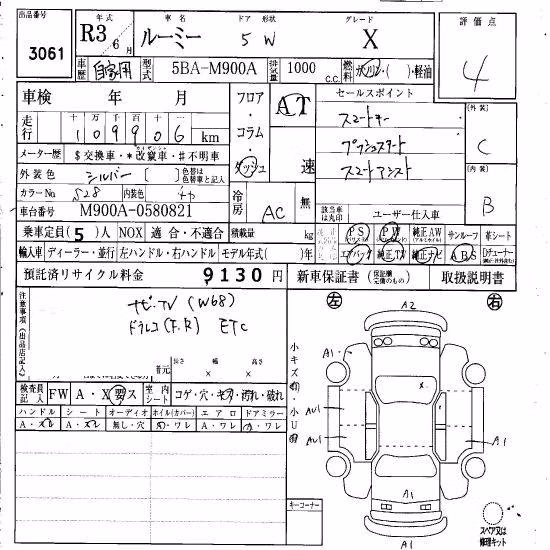 出品番号
3061
年式 R3 6月
車名 ルーミー
ドア 形状 5 W
グレード X
評価点 4
車歴 自家用
型式 5BA-M900A
排気量 1000 c.c.
燃料 ガソリン・( )・軽油
車検 年 月
走行 十万 万 千 百 十 一
109906 km
メーター歴 $交換車・*改竄車・#不明車
外装色 シルバー ( ) 色替は色替車と記入
カラーNo S28 内装色
車台番号 M900A-0580821
フロア・コラム・ダッシュ
AT 速
冷房 AC 無
セールスポイント
スマートキー
プッシュスタート
スマートアシスト
外装 C
内装 B
該当車は丸印
ユーザー仕入車
乗車定員( 5 )人 NOX 適合・不適合 積載量 kg
PS PW 純正AW サンルーフ 革シート
輸入車 ディーラー・並行 左ハンドル・右ハンドル モデル年式( )年
エアバッグ 純正TV 純正ナビ ABS Dチューナー
預託済リサイクル料金 9130円
新車保証書 取扱説明書
注意事項(出品店記入)
ナビ・TV (W68)
ドラレコ(F,R) ETC
長さ 幅 高さ
小キズ 小U
左 右
A2
A1
AU1
AU1
A1
A1
A1
検査員記入 FW A・X 要ス 室内シート コゲ・穴・キズ・汚れ・破れ
ハンドル シート オーディオ ホイル(カバー) エアロ ドアミラー
A・スレ A・スレ 無し・穴 A・ワレ A・ワレ A・ワレ
キーコーナー
スペア又は修理キット